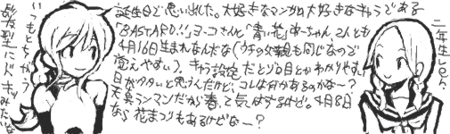 誕生日で思い出した。大好きなマンガの大好きなキャラである
「BASTARD!!」ヨーコさんと「青い花」あーちゃん、2人とも
4月16日生まれなんだな(ウチの父親も同じなので
覚えやすい)。キャラ設定だとゾロ目とかわかりやすい
日がクサいと思うんだけど、コレは何かあるのかな〜?
天真ランマンだから春、て気はするけど。4月8日
なら花まつりもあるけどな〜?
二年生レミ
いつもとちがう
髪型にドキみたいな